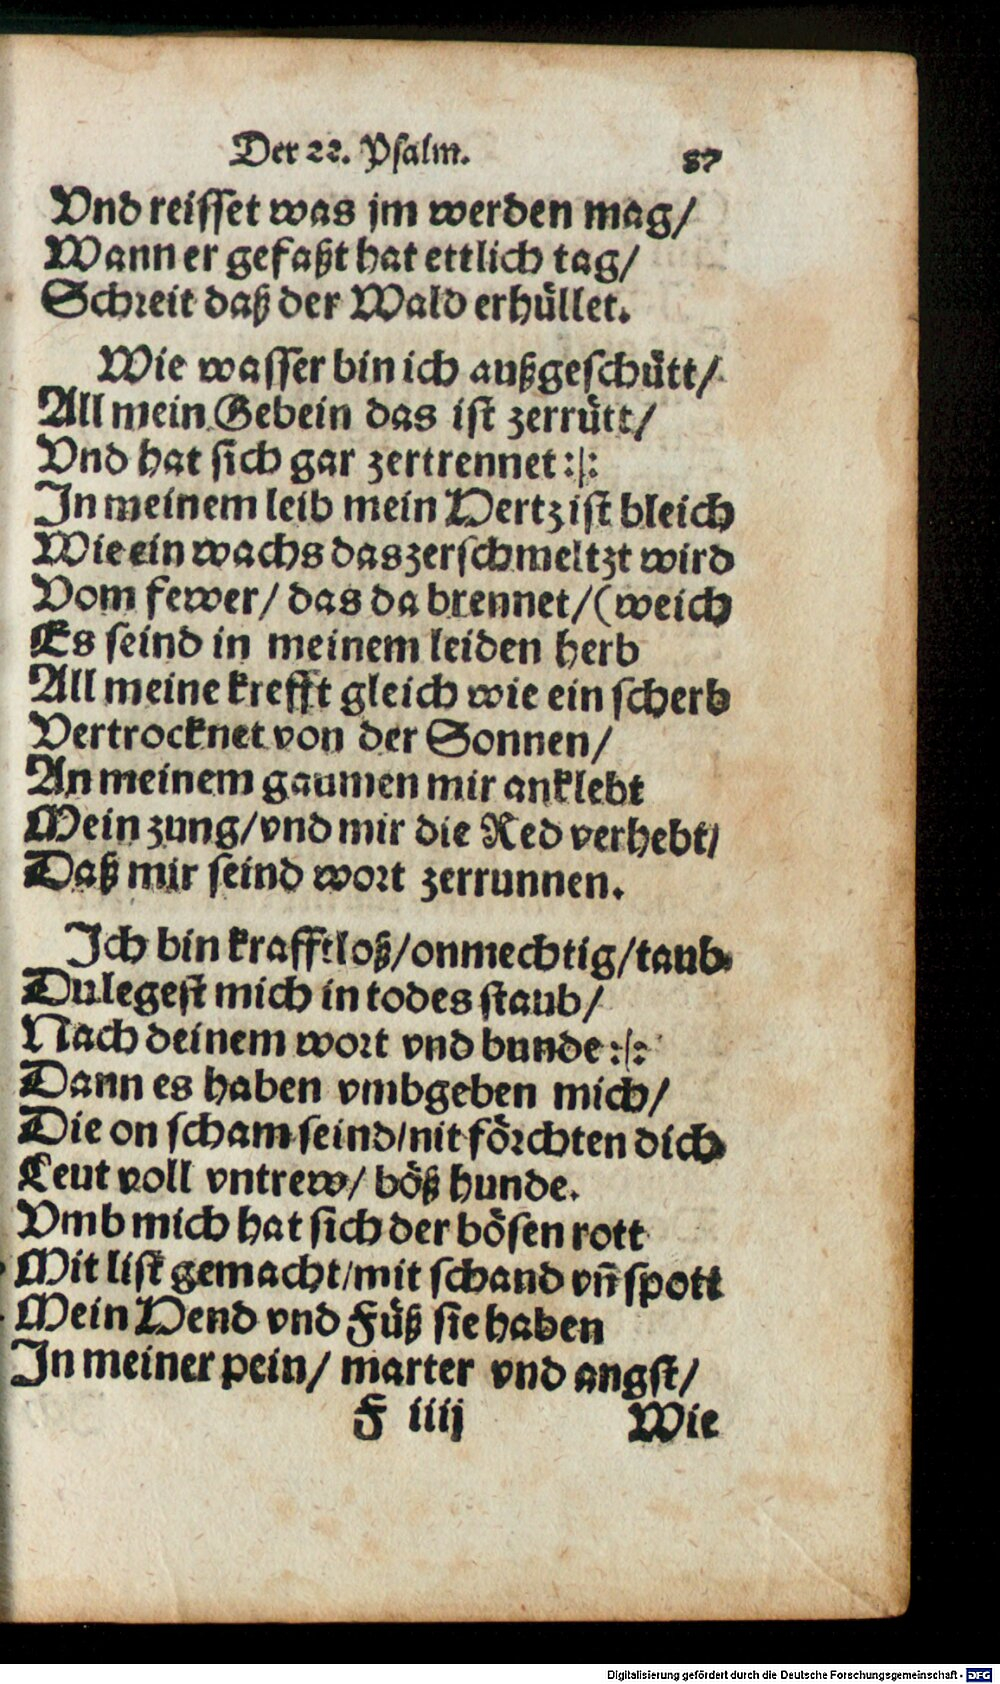 Der 22. Psalm. 87
Vnd reisset was jm werden mag/
Wann er gefaßt hat ettlich tag/
Schreit daß der Wald erhüllet.
Wie wasser bin ich außgeschütt/
All mein Gebein das ist zerrütt/
Vnd hat sich gar zertrennet :|:
In meinem leib mein Hertz ist bleich
Wie ein wachs das zerschmeltzt wird
Vom fewer/ das da brennet/ (weich
Es seind in meinem leiden herb
All meine krefft gleich wie ein scherb
Vertrocknet von der Sonnen/
An meinem gaumen mir anklebt
Mein zung/ vnd mir die Red verhebt/
Daß mir seind wort zerrunnen.
Ich bin krafftloß/ onmechtig/ taub
Du legest mich in todes staub/
Nach deinem wort vnd bunde :|:
Dann es haben vmbgeben mich/
Die on scham seind/ nit förchten dich
Leut voll vntrew/ böß hunde.
Vmb mich hat sich der bösen rott
Mit list gemacht/ mit schand vñ spott
Mein Hend vnd Füß sie haben
In meiner pein/ marter vnd angst/
F iiij Wie
Digitalisierung gefördert durch die Deutsche Forschungsgemeinschaft - DFG